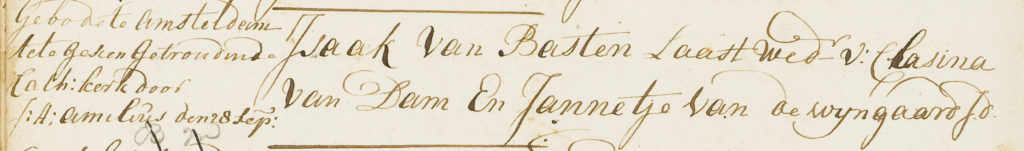 Gebode te Amsteldam
te gesen Getroud in de
Cach: kerk door
J: A: Amelius den 28 Sep:
Isaak Van Basten Laast Wedr v: Clasina
van Dam En Jannetje Van de wyngaard J.d.